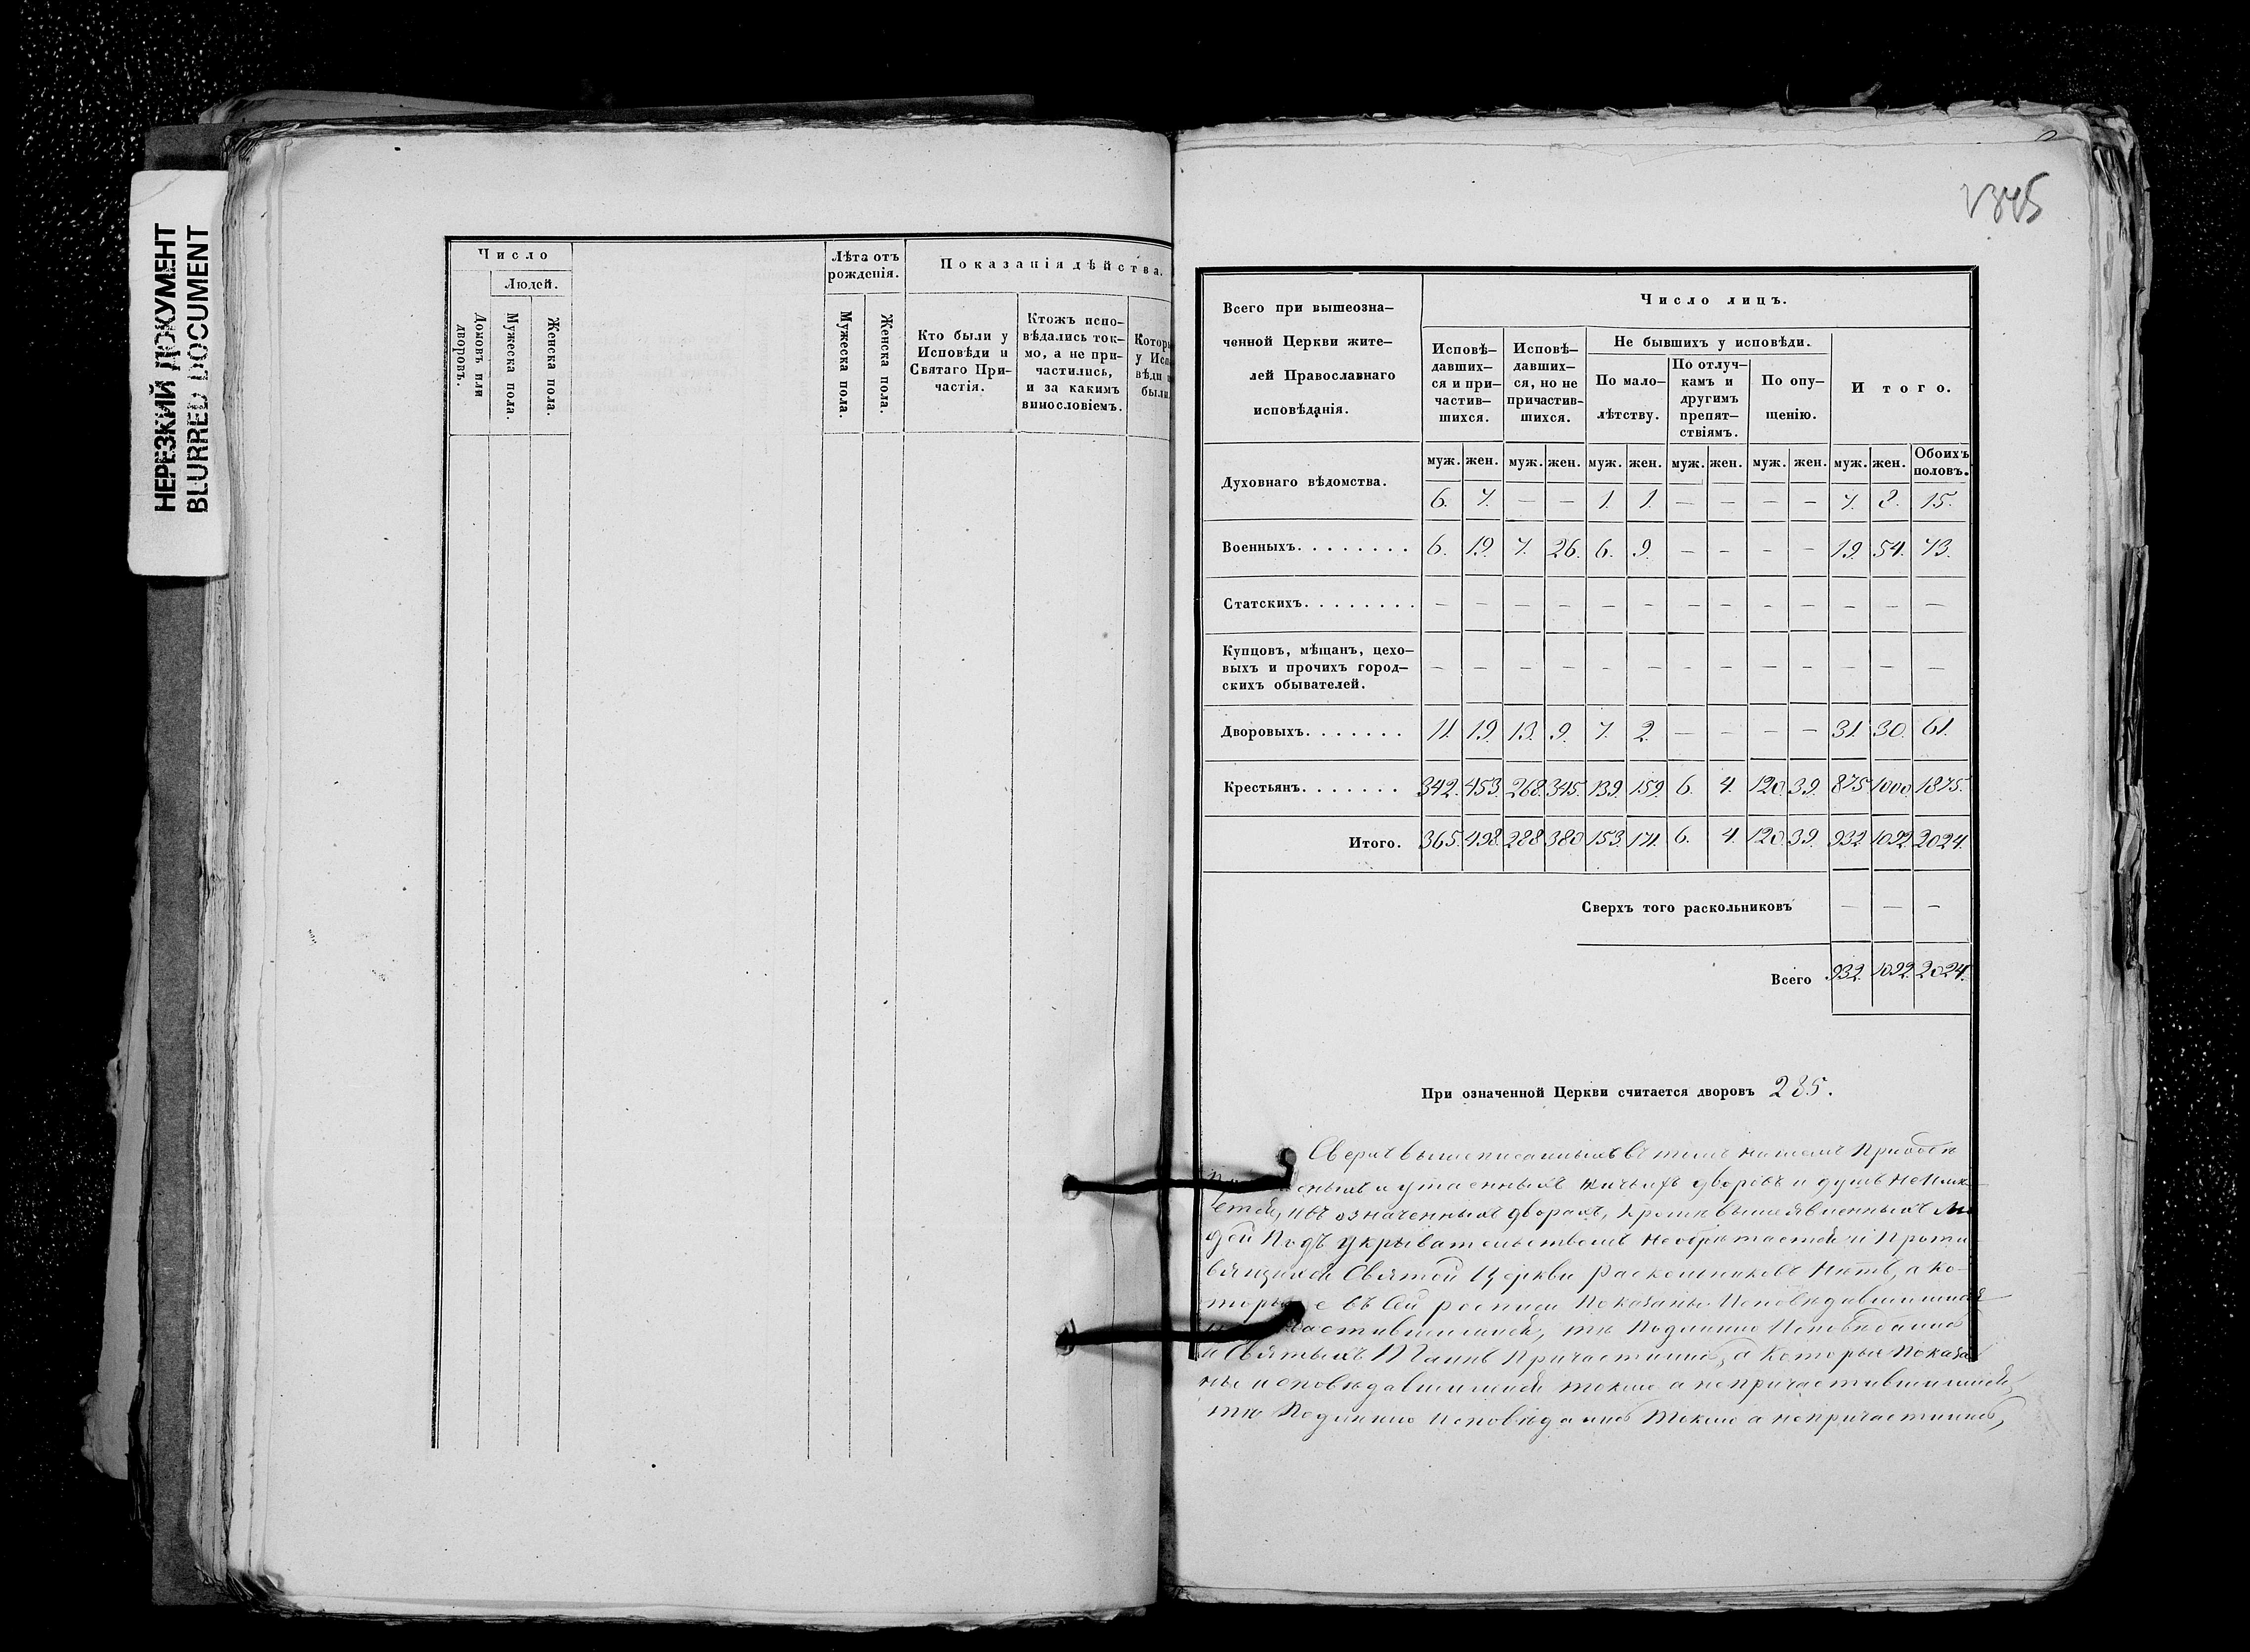 НЕРЕЗКИЙ ДОКУМЕНТ
BLURRED DOCUMENT
Число
Людей.
Домовъ или дворовъ.
Мужеска пола.
Женска пола.
Лѣта отъ рожденія.
Мужеска пола.
Женска пола.
Показанія дѣйства.
Кто были у
Исповѣди и
Святаго При-
частія.
Ктожъ испо-
вѣдались ток-
мо, а не при-
частились,
и за какимъ
винословіемъ.
Котор
у Исп
вѣди
были
345
Всего при вышеозна-
ченной Церкви жите-
лей Православнаго
исповѣданія.
Число лицъ.
Исповѣ-
давших-
ся и при-
частив-
шихся.
Исповѣ-
давших-
ся, но не
причастив-
шихся.
Не бывшихъ у исповѣди.
По мало-
лѣтству.
По отлуч-
камъ и
другимъ
препят-
ствіямъ.
По опу-
щенію.
Итого.
муж. жен. муж. жен. муж. жен. муж. жен. муж. жен. муж. жен. Обоихъ половъ.
Духовнаго вѣдомства. 6. 7. — — 1. 1. — — — — 7. 8. 15.
Военныхъ. . . . . . . . 6. 19. 7. 26. 6. 9. — — — — 19. 54. 73.
Статскихъ. . . . . . . . — — — — — — — — — — — — —
Купцовъ, мѣщанъ, цехо-
выхъ и прочихъ город- — — — — — — — — — — — — —
скихъ обывателей.
Дворовыхъ. . . . . . . 11. 19. 13. 9. 7. 2. — — — — 31. 30. 61.
Крестьянъ. . . . . . . 342. 453. 268. 345. 139. 159. 6. 4. 120. 39. 875. 1000. 1875.
Итого. 365. 498. 288. 380. 153. 171. 6. 4. 120. 39. 932. 1092. 2024.
Сверхъ того раскольниковъ — — —
Всего 932. 1092. 2024.
При означенной Церкви считается дворовъ 285.
Сверхъ вышеписанныхъ въ томъ нашемъ Приходѣ
и утаенныхъ чьихъ дворовъ и душъ не имѣ-
ется, и въ означенныхъ дворахъ, кромѣ вышеявленныхъ лю
дей подъ укрывательствомъ необрѣтается и Проти
вящихся Святой Церкви раскольниковъ нѣтъ, а ко-
торые въ сей росписи показаны Исповѣдавшимися
частившимися, тѣ подлинно Исповѣдались
и Святыхъ Таинъ Причастились, а которые показа
ны исповѣдавшимися токмо а непричастившимися,
тѣ подлинно исповѣдались токмо а непричастились,